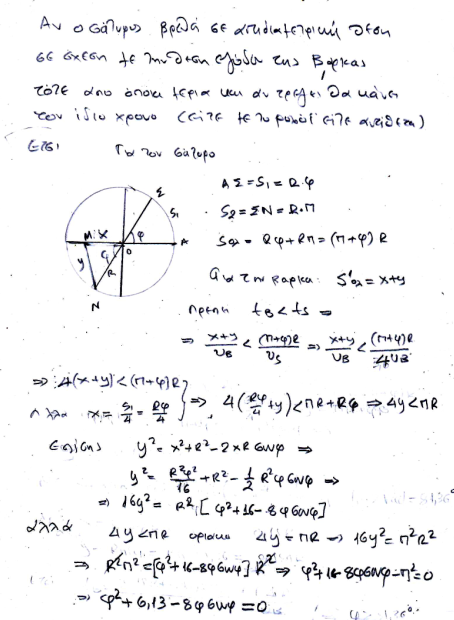 Αν ο σάτυρος βρεθεί σε αντιδιαμετρική θέση
σε σχέση με την θέση εξόδου της βάρκας
τότε από όποια μεριά και αν τρέξει θα κάνει
τον ίδιο χρόνο (είτε με το ρολόϊ είτε αντίθετα)
Έτσι Για τον σάτυρο
ΑΣ = S₁ = R·φ
S₂ = ΣΝ = R·π
Sολ = Rφ + Rπ = (π+φ)R
Για την βάρκα: S'ολ = x+y
Πρέπει t_B < t_S ⇒
⇒ (x+y)/υ_B < (π+φ)R/υ_S ⇒ (x+y)/υ_B < (π+φ)R/4υ_B
Σ
S₁
φ
A
O
M
x
φ
y
R
N
⇒ 4(x+y) < (π+φ)R
Αλλά x = S₁/4 = Rφ/4 } ⇒ 4(Rφ/4 + y) < πR + Rφ ⇒ 4y < πR
Επίσης y² = x² + R² - 2xR συνφ ⇒
y² = R²φ²/16 + R² - 1/2 R²φ συνφ ⇒
⇒ 16y² = R² [φ² + 16 - 8φ συνφ]
αλλά 4y < πR οριακά 4y = πR → 16y² = π²R²
⇒ R²π² = [φ² + 16 - 8φ συνφ] R² ⇒ φ² + 16 - 8φ συνφ - π² = 0
⇒ φ² + 6,13 - 8φ συνφ = 0